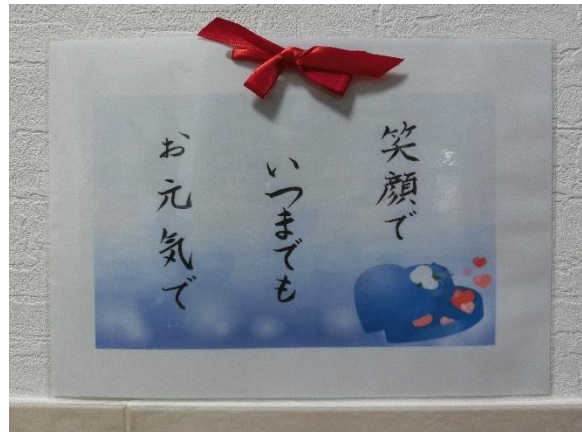 笑顔で
いつまでも
お元気で